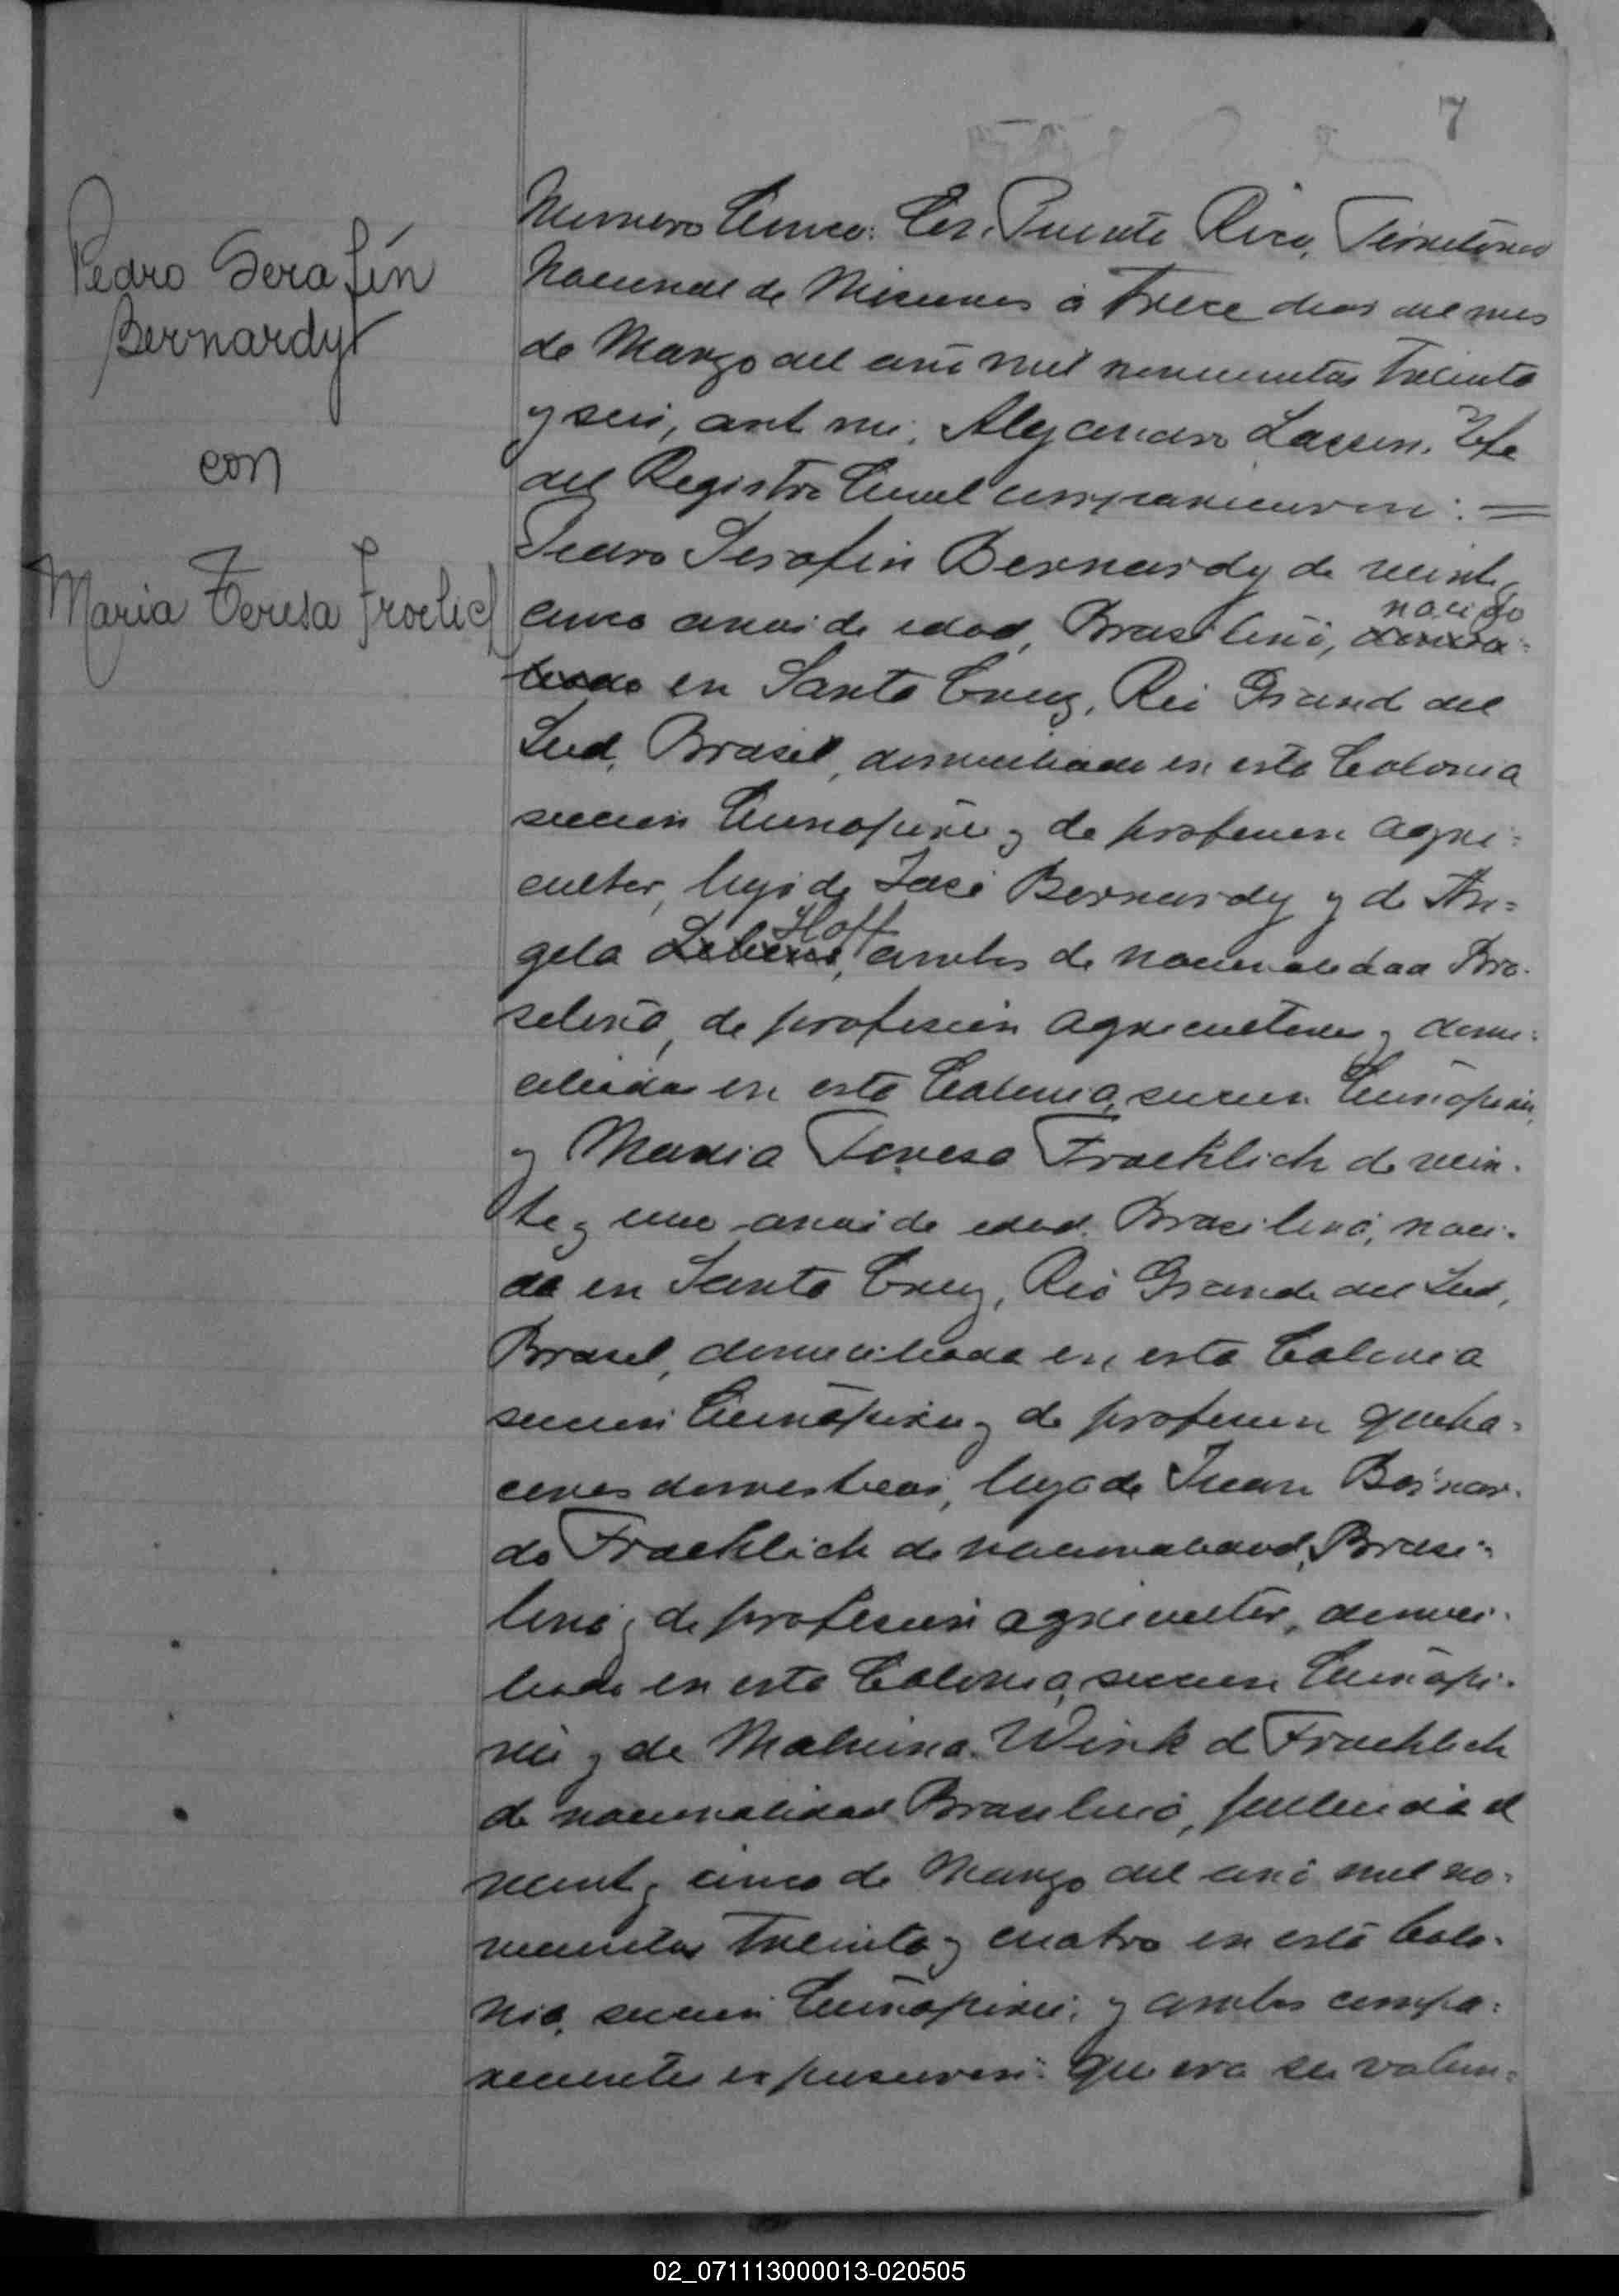 7
Pedro Serafín
Bernardy
con
Maria Teresa Froelich
Numero Cinco: En Puerto Rico, Territorio
Nacional de Misiones á trece dias del mes
de Marzo del año mil novecientos treinta
y seis, ante mi, Alejandro Lassen, Jefe
del Registro Civil comparecieron: =
Pedro Serafin Bernardy de veinte y
cinco años de edad, Brasileño, nacido
en Santa Cruz, Rio Grande del
Sud, Brasil, domiciliado en esta Colonia
sección Cuñapirú y de profesion agri=
cultor, hijo de José Bernardy y de An=
gela Hoff, ambos de nacionalidad Bra-
sileña, de profesión agricultores y domi=
ciliados en esta Colonia, sección Cuñapirú,
y Maria Teresa Froehlich de vein-
te y uno años de edad, Brasileña, naci-
da en Santa Cruz, Rio Grande del Sud,
Brasil, domiciliada en esta Colonia
sección Cuñapirú y de profesion queha=
ceres domesticos, hija de Juan Bernar-
do Froehlich de nacionalidad Brasi=
leña, de profesión agricultor, domici-
liado en esta Colonia, sección Cuñapi-
rú y de Malvina Wink de Froehlich
de nacionalidad Brasileña, fallecida el
veinte y cinco de Marzo del año mil no=
vecientos treinta y cuatro en esta Colo-
nia, sección Cuñapirú; y ambos compa=
recientes expusieron: que era su volun=
02_071113000013-020505